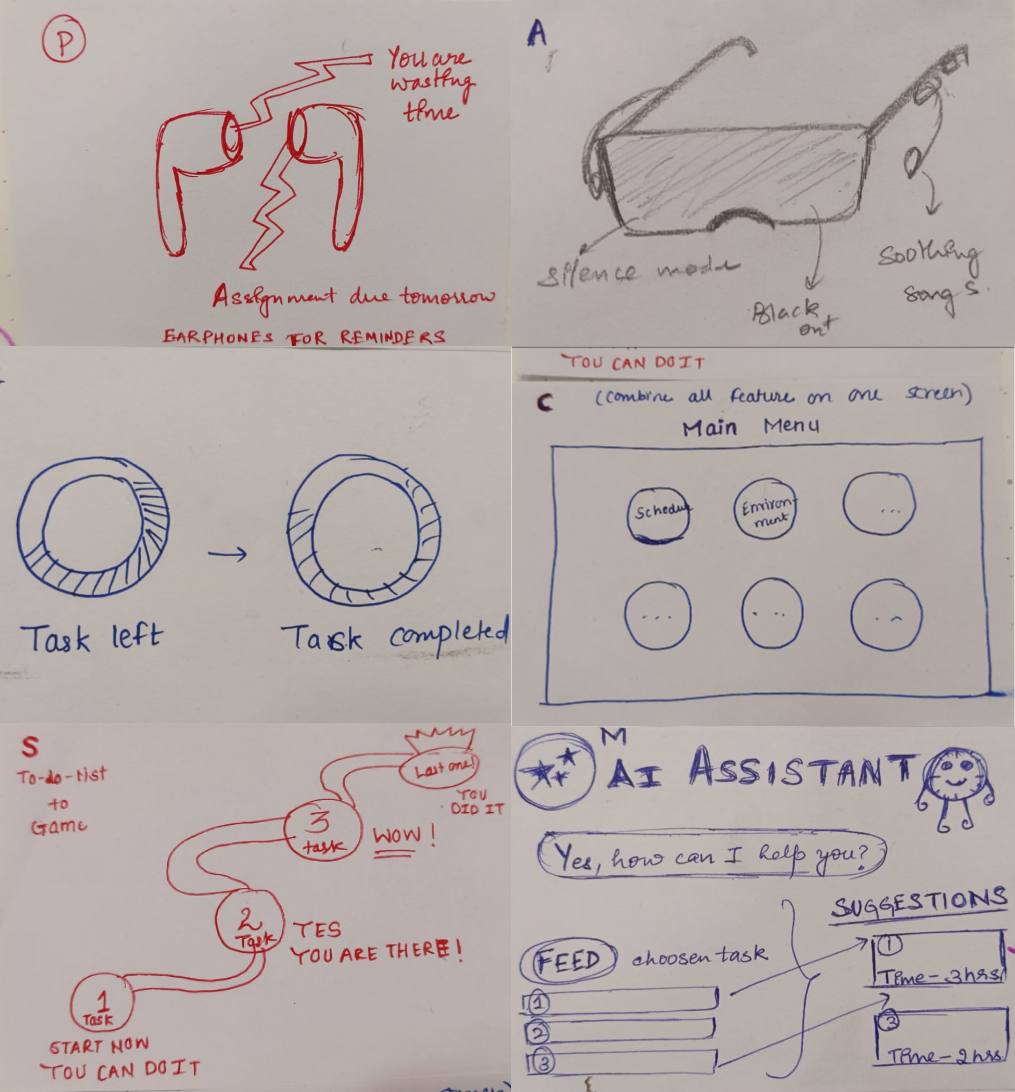 P
You are
wasting
time
Assignment due tomorrow
EARPHONES FOR REMINDERS
A
Silence mode
Black
out
Soothing
songs
Task left
Task completed
YOU CAN DO IT
C
(combine all feature on one screen)
Main Menu
Schedul
Environ-
ment
...
...
...
...
S
To-do-list
to
Game
Last one!
YOU
DID IT
3
task
WOW!
2
Task
YES
YOU ARE THERE!
1
Task
START NOW
YOU CAN DO IT
M
AI ASSISTANT
Yes, how can I help you?
SUGGESTIONS
FEED choosen task
1
2
3
1
Time - 3hrs
3
Time - 2hrs